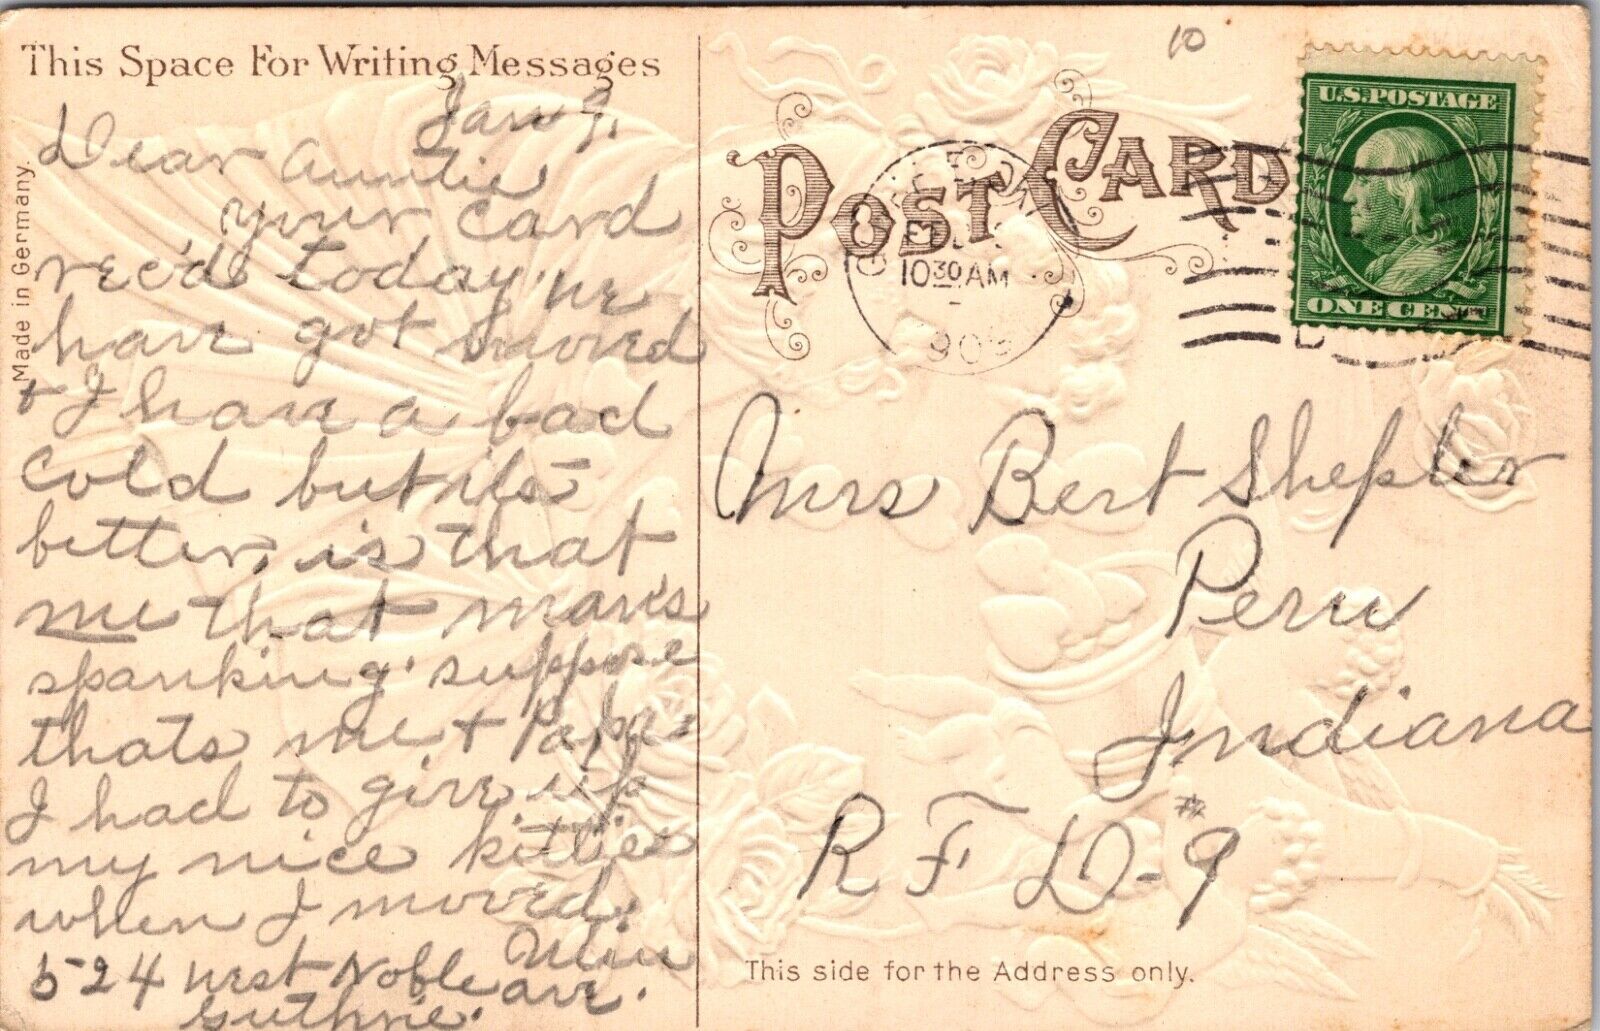 This Space For Writing Messages
Jan 9.
Dear Auntie
your card
rec'd today. we
have got moved
+ I have a bad
cold but its
better, is that
me that man's
spanking. suppose
thats me + Papa.
I had to give up
my nice kitties
when I moved.
524 West Noble ave.
Guthrie.
Made in Germany.
10
POST CARD
10 30 AM
U.S. POSTAGE
ONE CENT
Mrs Bert Shepler
Peru
Indiana
R F D-#9
This side for the Address only.